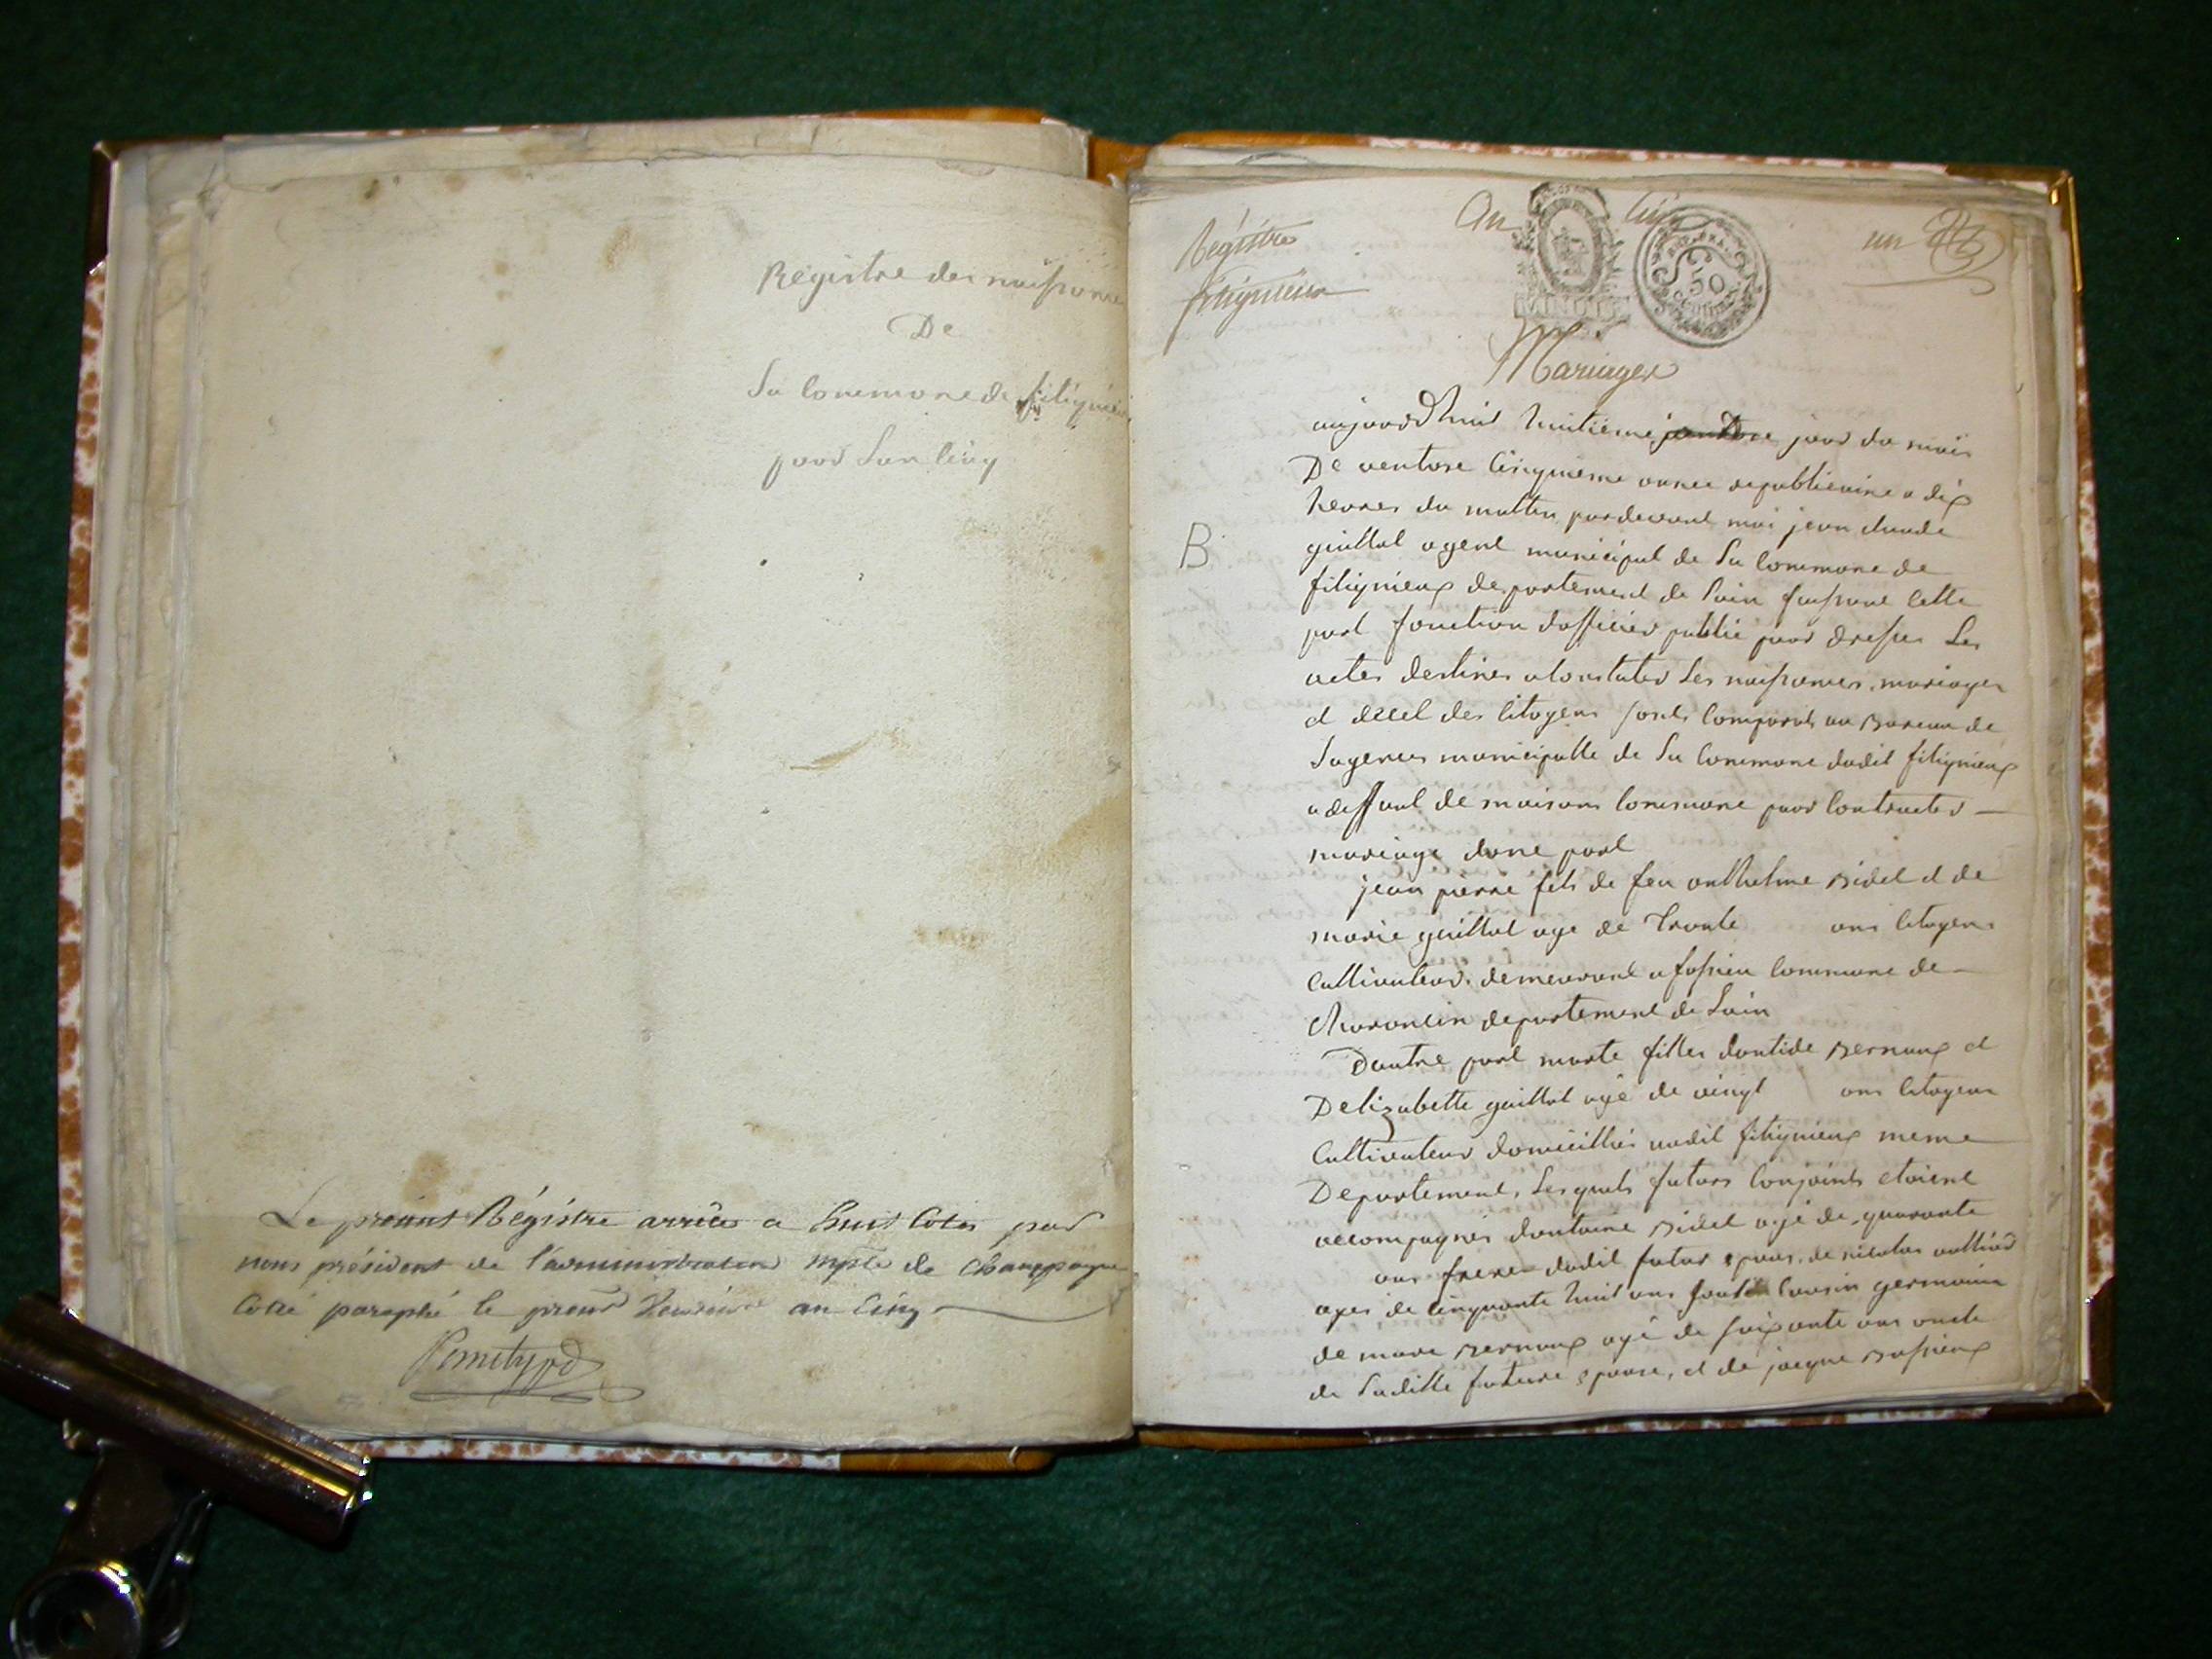 Régistre des naissances
De
La Commone de fitignieu
pour Lan cinq
Le présent Régistre arrêté a huit Cotes par
nous président de l'administration mple de Champagne
Coté paraphé le premier Vendémiaire an Cinq
Registre
fitignieux
an Cinq
un
MINUTE
50
CENTIMES
Mariages
B
aujourdhuit huitieme jour du mois
De ventose Cinquieme annee republicaine a dix
heures du mattin pardevant moi jean claude
guillot agent municipal de La Commone de
fitignieux departement de Lain faissant Cette
part fonction dofficier public pour dresser Les
actes destines a Constater Les naissances, mariages
et decel des Citoyens sonts Comparuts au Bureau de
Lagences municipalle de La Commone dudit fitignieux
a deffaut de maisons Commone pour Contracter —
mariage done part
jean pierre fils de feu anthelme Bidel et de
marie guillot age de trante ans Citoyens
Cultivateur demeurant a fossieu Commune de —
Charancin departement de Lain
Dautre part marte filles dantide Bernaux et
Delizabette guillot agé de vingt ans Citoyens
Cultivateur domicilliés audit fitignieux meme
Departement, Lesquels futurs Conjoints etoient
accompagnés dantoine Bidel agé de quarante
ans frere dudit futur epoux, de nicolas
ages de Cinquante huit ans Cousin germains
de marc Bernaux agé de soixante ans oncle
de Laditte future epouse, et de jacque Bossieux